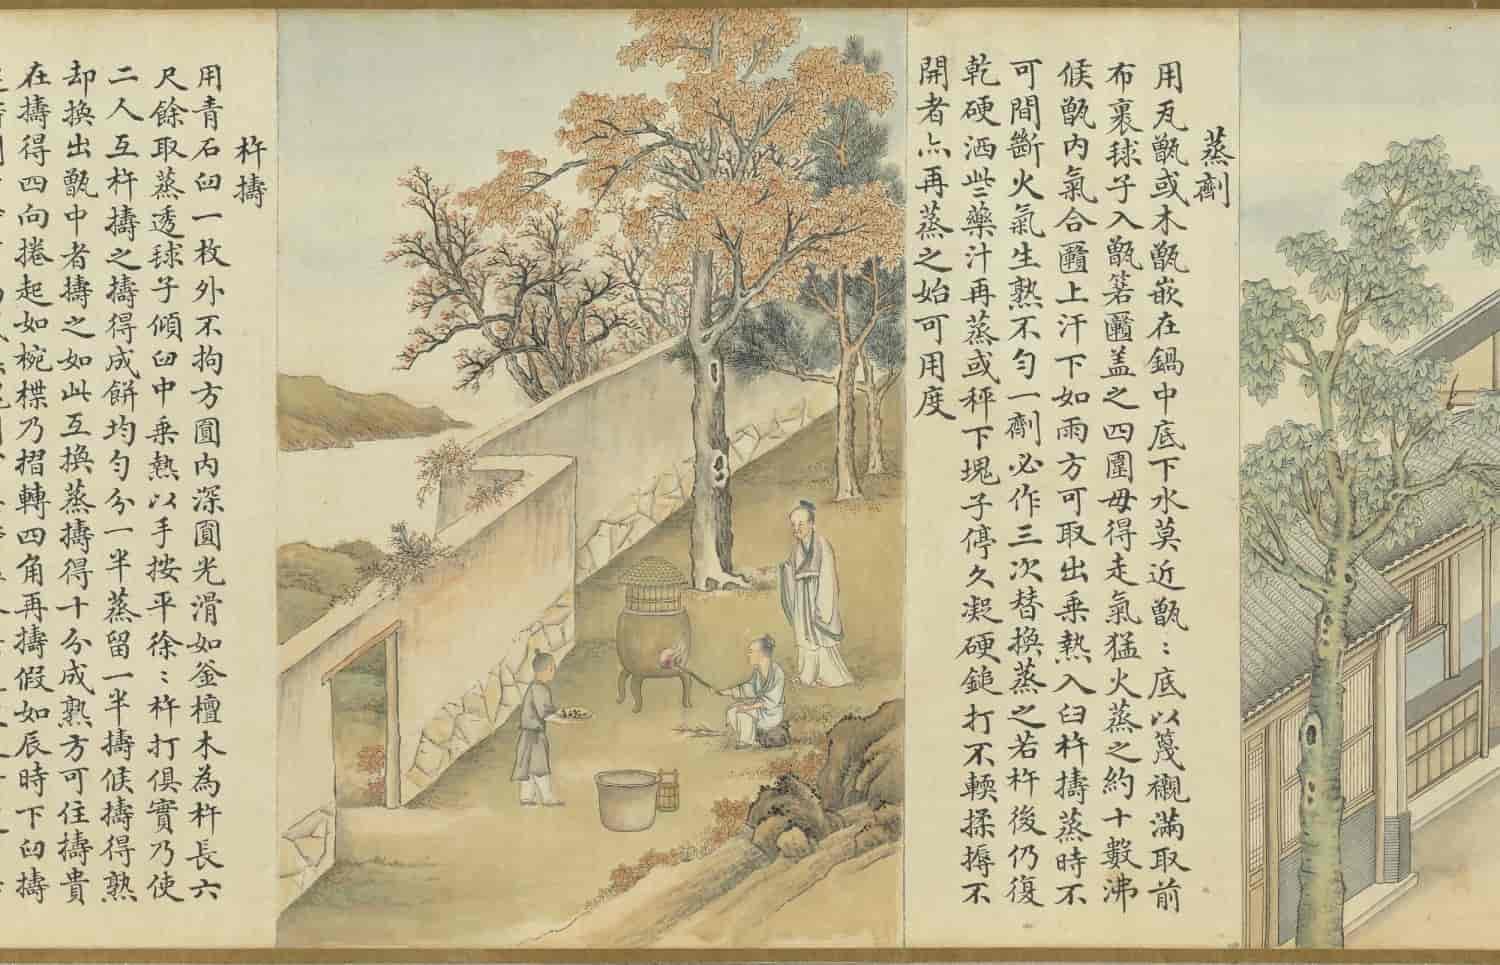 蒸劑
用瓦甑或木甑嵌在鍋中底下水莫近甑〻底以篾襯滿取前
布裹球子入甑箬圈盖之四圍毋得走氣猛火蒸之約十數沸
候甑内氣合圈上汗下如雨方可取出乗熱入臼杵擣蒸時不
可間斷火氣生熟不勻一劑必作三次替換蒸之若杵後仍復
乾硬洒些藥汁再蒸或秤下塊子停久凝硬鎚打不輭揉搙不
開者亦再蒸之始可用度
杵擣
用青石臼一枚外不拘方圓内深圓光滑如釜檀木為杵長六
尺餘取蒸透球子傾臼中乗熱以手按平徐〻杵打俱實乃使
二人互杵擣之擣得成餅均勻分一半蒸留一半擣候擣得熟
却換出甑中者擣之如此互換蒸擣得十分成熟方可住擣貴
在擣得四向捲起如椀楪乃摺轉四角再擣假如辰時下臼擣